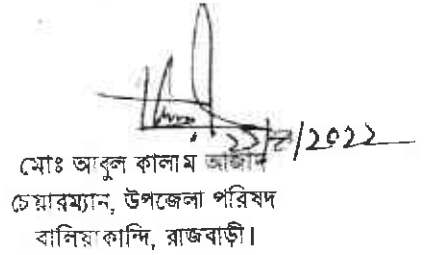 /2022
মোঃ আবুল কালাম আজাদ
চেয়ারম্যান, উপজেলা পরিষদ
বালিয়াকান্দি, রাজবাড়ী।